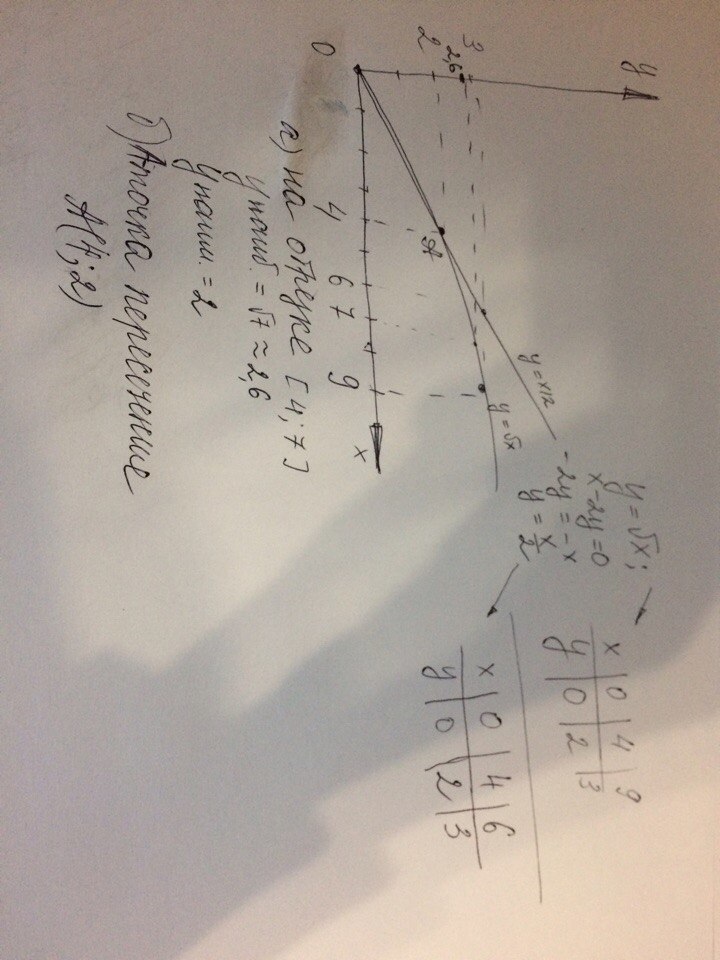 y
3
2,6
2
0
4
6
7
9
x
A
y=x/2
y=√x
y=√x;
x-2y=0
-2y=-x
y=x/2
x | 0 | 4 | 9
y | 0 | 2 | 3
x | 0 | 4 | 6
y | 0 | 2 | 3
а) на отрезке [4;7]
y наиб. = √7 ≈ 2,6
y наим. = 2
б) A точка пересечение
A(4;2)